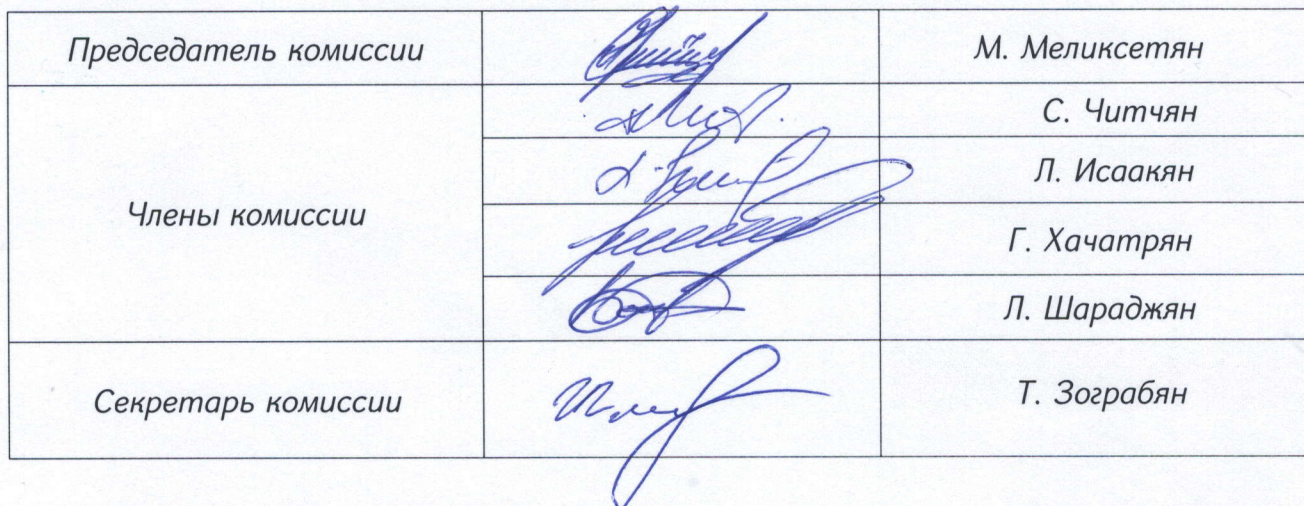 Председатель комиссии
М. Меликсетян
Члены комиссии
С. Читчян
Л. Исаакян
Г. Хачатрян
Л. Шараджян
Секретарь комиссии
Т. Зограбян